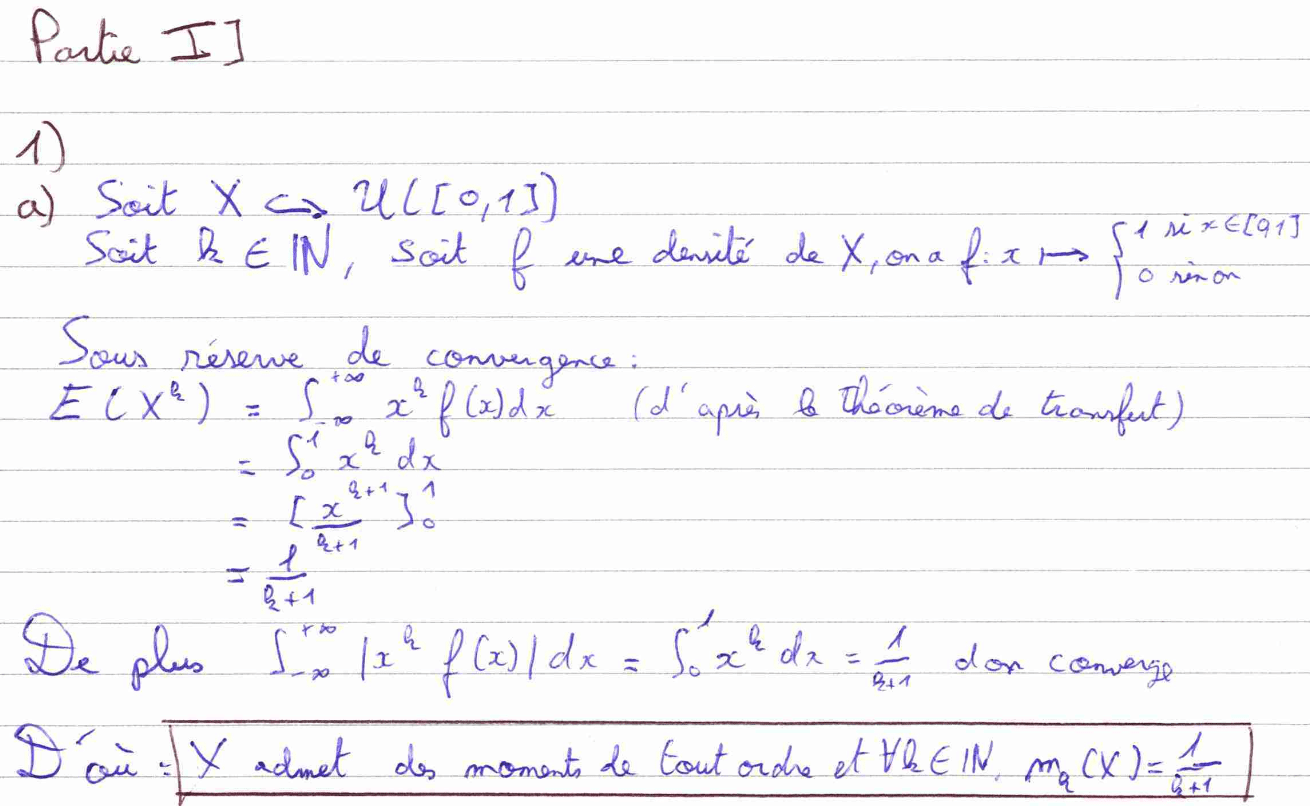 Partie I]
1)
a) Soit X ↪ U([0,1])
Soit k ∈ IN, soit f une densité de X, on a f: x ↦ { 1 si x ∈ [0,1] 0 sinon
Sous réserve de convergence :
E(X^k) = ∫_{-∞}^{+∞} x^k f(x) dx (d'après le théorème de transfert)
= ∫_0^1 x^k dx
= [x^{k+1}/(k+1)]_0^1
= 1/(k+1)
De plus ∫_{-∞}^{+∞} |x^k f(x)| dx = ∫_0^1 x^k dx = 1/(k+1) donc converge
D'où : X admet des moments de tout ordre et ∀k ∈ IN, m_k(X) = 1/(k+1)